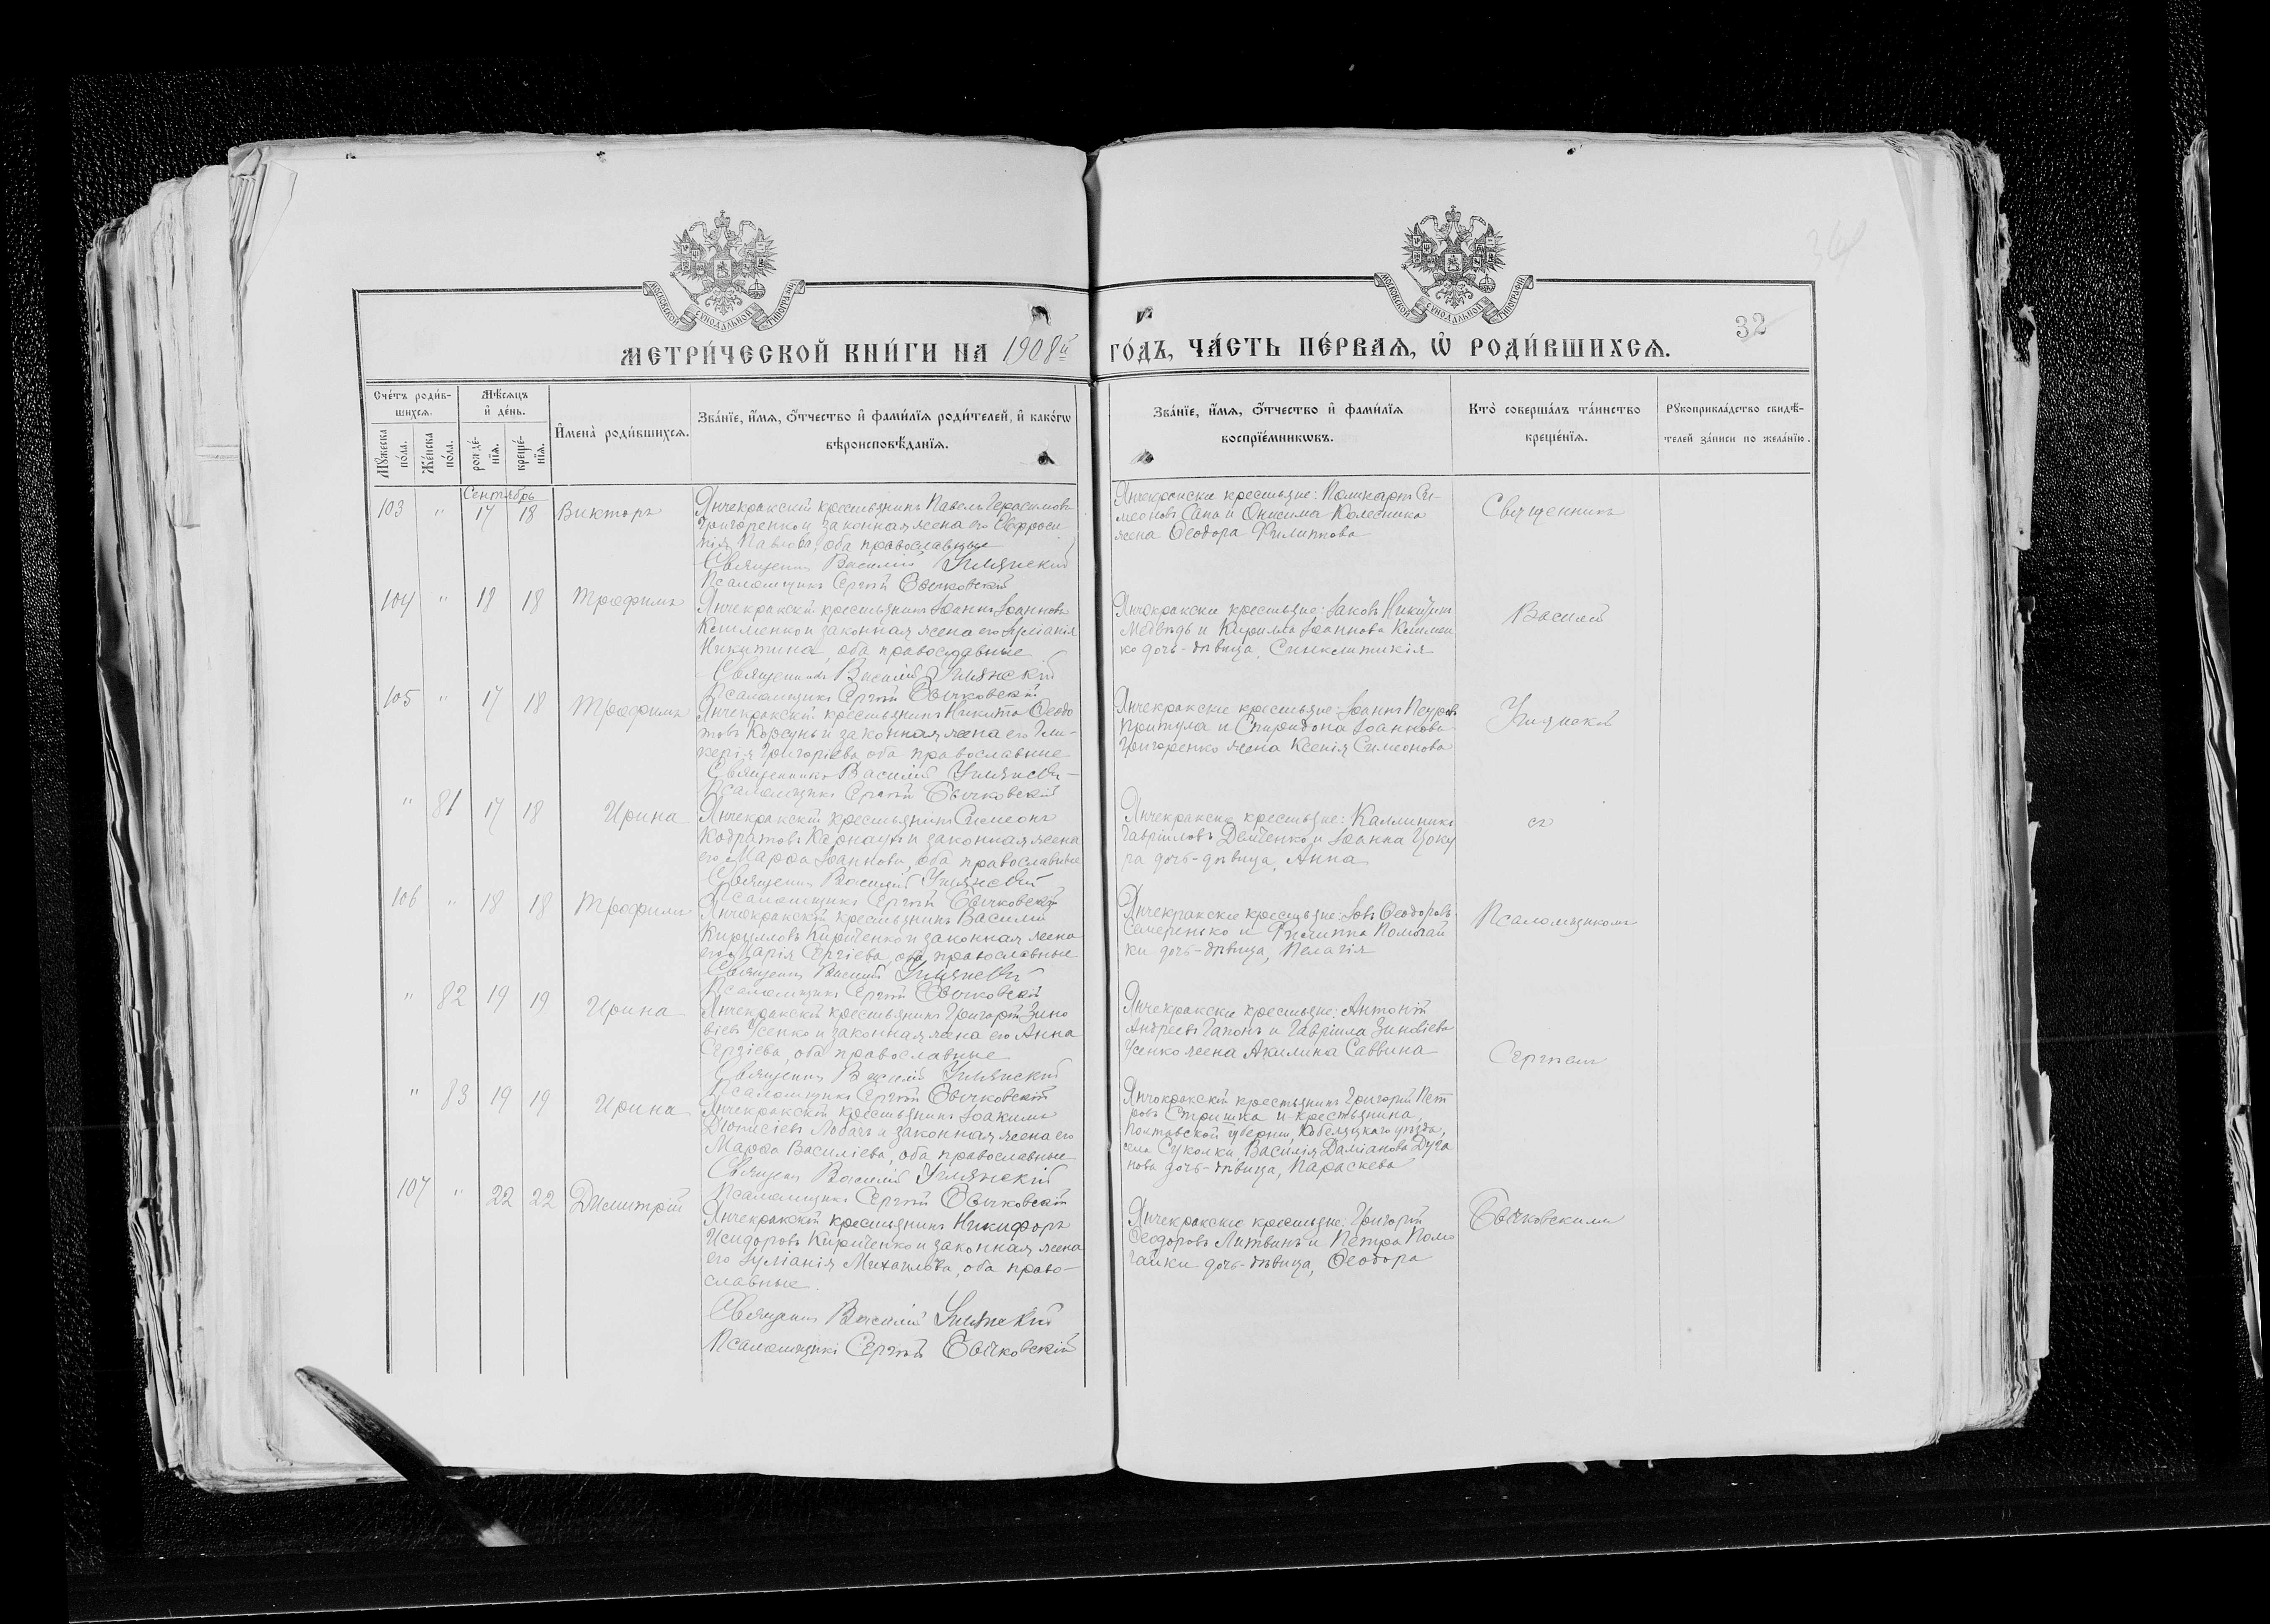 МОСКОВСКОЙ СѴНОДАЛЬНОЙ ТИПОГРАФІИ
МОСКОВСКОЙ СѴНОДАЛЬНОЙ ТИПОГРАФІИ
32
МЕТРИ́ЧЕСКОЙ КНИ́ГИ НА 1908й ГО́ДЪ, ЧА́СТЬ ПЕ́РВАѦ, Ѡ҆ РОДИ́ВШИХСѦ.
Сче́тъ роди́в-
шихсѧ.
Мѣ́сѧцъ
и҆ де́нь.
Мꙋ́жеска по́ла.
Же́нска по́ла.
рожде́-нїѧ.
креще́-нїѧ.
И҆мена̀ роди́вшихсѧ.
Зва́нїе, и҆́мѧ, ѻ҆́тчество и҆ фами́лїѧ роди́телей, и҆ како́гѡ
вѣроисповѣ́данїѧ.
Зва́нїе, и҆́мѧ, ѻ҆́тчество и҆ фами́лїѧ
воспрїе́мникѡвъ.
Кто̀ соверша́лъ та́инство
креще́нїѧ.
Рꙋкоприкла́дство свидѣ́-
телей за́писи по жела́нїю.
Сентябрь
103 " 17 18 Викторъ
Янчекракскій крестьянинъ Павелъ Герасимовъ
Григоренко и законная жена его Евфроси
нія Павлова, оба православные
Священникъ Василій Уманскій
Псаломщикъ Сергій Бычковскій
Янчекракскіе крестьяне: Поликарпъ Си-
меоновъ Сапа и Онисима Колесника
жена Ѳеодора Филиппова
Священникъ
104 " 18 18 Трофимъ
Янчекракскій крестьянинъ Іоаннъ Іоанновъ
Клименко и законная жена его Іуліанія
Никитина, оба православные
Священникъ Василій Уманскій
Псаломщикъ Сергій Бычковскій
Янчекракскіе крестьяне: Іаковъ Никитинъ
Медвѣдь и Кирилла Іоаннова Климен
ко дочь-дѣвица, Синклитикія
Василій
105 " 17 18 Трофимъ
Янчекракскій крестьянинъ Никита Ѳеодо
товъ Корсунь и законная жена его Гли-
керія Григоріева, оба православные
Священникъ Василій Уманскій
Псаломщикъ Сергій Бычковскій
Янчекракскіе крестьяне: Іоаннъ Петровъ
Притула и Спиридона Іоаннова
Григоренко жена Ксенія Симеонова
Уманскій
" 81 17 18 Ирина
Янчекракскій крестьянинъ Симеонъ
Кодратовъ и законная жена
его Марѳа Іоаннова, оба православные
Священникъ Василій Уманскій
Псаломщикъ Сергій Бычковскій
Янчекракскіе крестьяне: Каллиникъ
Гавріиловъ Демченко и Іоанна Цоку
ра дочь-дѣвица, Анна
съ
106 " 18 18 Трофимъ
Янчекракскій крестьянинъ Василій
Кирилловъ Кириченко и законная жена
его Марія Сергіева, оба православные
Священникъ Василій Уманскій
Псаломщикъ Сергій Бычковскій
Янчекракскіе крестьяне: Іовъ Ѳеодоровъ
Семеренско и Филиппа Помогай
ки дочь-дѣвица, Пелагія
Псаломщикомъ
" 82 19 19 Ирина
Янчекракскій крестьянинъ Григорій Зино
віевъ Усенко и законная жена его Анна
Сергіева, оба православные
Священникъ Василій Уманскій
Псаломщикъ Сергій Бычковскій
Янчекракскіе крестьяне: Антоній
Андреевъ Гапонъ и Гавріила Зиновіева
Усенко жена Акилина Саввина
Сергіемъ
" 83 19 19 Ирина
Янчекракскій крестьянинъ Іоакимъ
Діонисіевъ Лобачъ и законная жена его
Марѳа Василіева, оба православные
Священникъ Василій Уманскій
Псаломщикъ Сергій Бычковскій
Янчекракскій крестьянинъ Григорій Пет
ровъ Стришка и крестьянина
Полтавской губерніи, Кобеляцкаго уѣзда,
села Суколки, Василія Даміанова Дуга
нова дочь-дѣвица, Параскева
107 " 22 22 Димитрій
Янчекракскій крестьянинъ Никифоръ
Исидоровъ Кириченко и законная жена
его Іуліанія Михаилова, оба право-
славные.
Священникъ Василій Уманскій
Псаломщикъ Сергій Бычковскій
Янчекракскіе крестьяне: Григорій
Ѳеодоровъ Литвинъ и Петра Помо
гайки дочь-дѣвица, Ѳеодора
Бычковскимъ